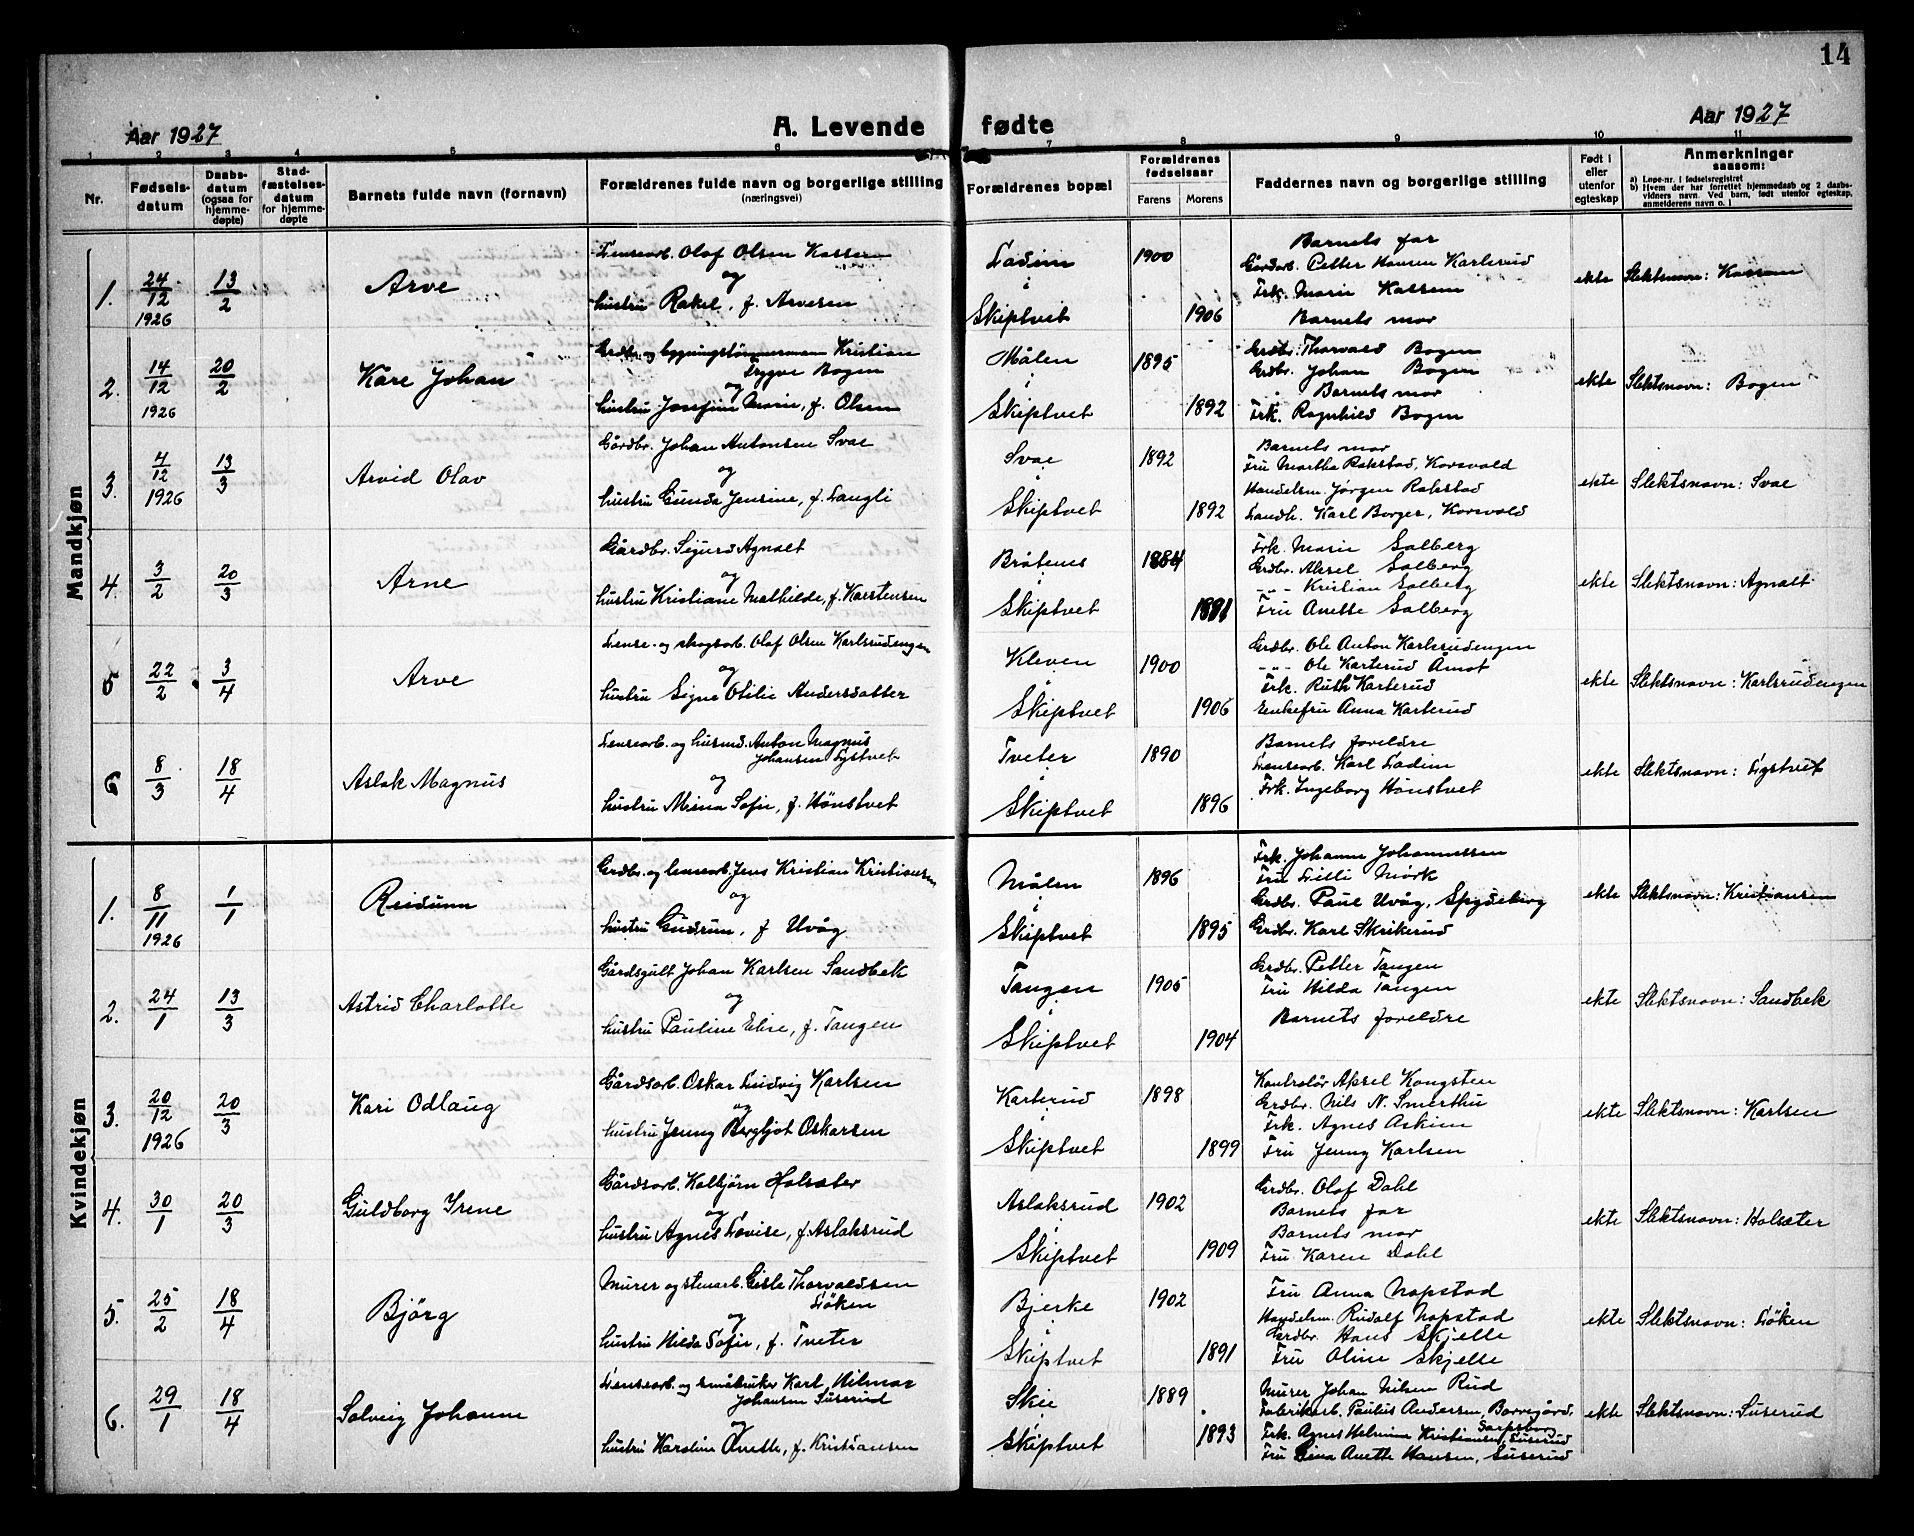 14
Aar 1927
A. Levende fødte
Aar 1927
1 2 3 4 5 6 7 8 9 10 11
Nr.
Fødsels-
datum
Daabs-
datum
(ogsaa for
hjemme-
døpte)
Stad-
fæstelses-
datum
for hjemme-
døpte
Barnets fulde navn (fornavn)
Forældrenes fulde navn og borgerlige stilling
(næringsvei)
Forældrenes bopæl
Forældrenes
fødselsaar
Farens Morens
Faddernes navn og borgerlige stilling
Født i
eller
utenfor
egteskap
Anmerkninger
saasom:
a) Løpe-nr. i fødselsregistret
b) Hvem der har forrettet hjemmedaab og 2 daabs-
vidners navn. Ved barn, født utenfor egteskap,
anmelderens navn o. l
Mandkjøn
1. 24/12 1926 13/2 Arve
Lensearb. Olaf Olsen Kassem
og
hustru Rakel, f. Arvesen
Ladim
i
Skiptvet
1900 1906
Barnets far
Gårdarb. Petter Hansen Karlsrud
Frk. Marie Kassem
Barnets mor
ekte Slektsnavn: Kassem
2. 14/12 1926 20/2 Kåre Johan
Grdbr. og bygningstømmermann Kristian
Trygve Bogen
og
hustru Josefine Marie, f. Olsen
Målen
i
Skiptvet
1895 1892
Grdbr. Thorvald Bogen
Grdbr. Johan Bogen
Barnets mor
Frk. Ragnhild Bogen
ekte Slektsnavn: Bogen
3. 4/12 1926 13/3 Arvid Olav
Gårdbr. Johan Antonsen Svae
og
hustru Gunda Jensine, f. Langli
Svae
i
Skiptvet
1892 1892
Barnets mor
Fru Martha Rakstad, Korsvold
Handelsm. Jørgen Rakstad
Landh. Karl Borger, Korsvold
ekte Slektsnavn: Svae
4. 3/2 20/3 Arne
Gårdbr. Sigurd Agnalt
og
hustru Kristiane Mathilde, f. Karstensen
Bråtenes
i
Skiptvet
1884 1891
Frk. Marie Solberg
Grdbr. Aksel Solberg
-"- Kristian Solberg
Fru Anette Solberg
ekte Slektsnavn: Agnalt
5 22/2 3/4 Arve
Lense- og skogsarb. Olaf Olsen Karlsrudengen
og
hustru Signe Otilie Andersdatter
Kleven
i
Skiptvet
1900 1906
Grdbr. Ole Anton Karlsrudengen
-"- Ole Karterud Åmot
Frk. Ruth Karterud
Enkefru Anna Karterud
ekte Slektsnavn: Karlsrudengen
6 8/3 18/4 Aslak Magnus
Lensearb. og husmd. Anton Magnus
Johansen Lystvet
og
hustru Minna Sofie, f. Hønstvet
Tveter
i
Skiptvet
1890 1896
Barnets foreldre
Lensearb. Karl Ladim
Frk. Ingeborg Hønstvet
ekte Slektsnavn: Lystvet
Kvindekjøn
1. 8/11 1926 1/1 Reidunn
Grdbr. og lensearb. Jens Kristian Kristiansen
og
hustru Gudrun, f. Uvåg.
Målen
i
Skiptvet
1896 1895
Frk. Johanne Johannessen
Fru Lilli Mørk
Grdbr. Paul Uvåg, Spydeberg
Grdbr. Karl Skrikerud
ekte Slektsnavn: Kristiansen
2. 24/1 13/3 Astrid Charlotte
Gårdsgutt Johan Karlsen Sandbek
og
hustru Pauline Elise, f. Tangen
Tangen
i
Skiptvet
1905 1904
Grdbr. Petter Tangen
Fru Hilda Tangen
Barnets foreldre
ekte Slektsnavn: Sandbek
3. 20/12 1926 20/3 Kari Odlaug
Gårdsarb. Oskar Ludvig Karlsen
og
hustru Jenny Bergljot Oskarsen
Karterud
i
Skiptvet
1898 1899
Kontrolør Aksel Kongsten
Grdbr. Nils N. Smerthu
Frk. Agnes Askim
Fru Jenny Karlsen
ekte Slektsnavn: Karlsen
4. 30/1 20/3 Guldborg Irene
Gårdsarb. Kolbjørn Holsæter
og
hustru Agnes Lovise, f. Aslaksrud
Aslaksrud
i
Skiptvet
1902 1909
Grdbr. Olaf Dahl
Barnets far
Barnets mor
Fru Karen Dahl
ekte Slektsnavn: Holsæter
5. 25/2 18/4 Bjørg
Murer og stenarb. Gisle Thorvaldsen
Løken
og
hustru Hilda Sofie, f. Tveter
Bjerke
i
Skiptvet
1902 1891
Fru Anna Nopstad
Handelsm. Rudolf Nopstad
Grdbr. Hans Skjelle
Fru Oline Skjelle
ekte Slektsnavn: Løken
6. 29/1 18/4 Solveig Johanne
Lensearb. og småbruker Karl Hilmar
Johansen Suserud
og
hustru Karoline Anette, f. Kristiansen
Skie
i
Skiptvet
1889 1893
Murer Johan Nilsen Rud
Fabrikarb. Paulus Andersen, Borregård,
Sarpsborg
Frk. Agnes Helmine Kristiansen, Suserud
Fru Lina Anette Hansen, Suserud
ekte Slektsnavn: Suserud